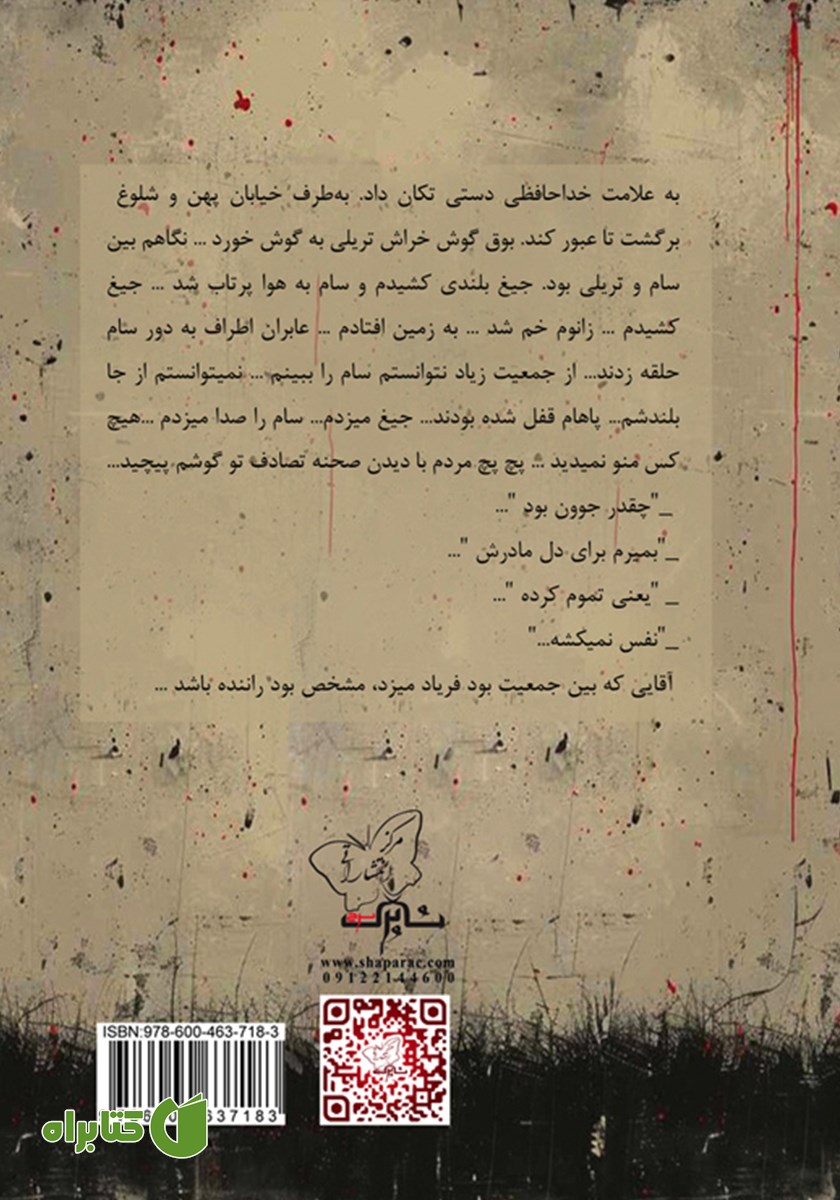 به علامت خداحافظی دستی تکان داد. به‌طرف خیابان پهن و شلوغ
برگشت تا عبور کند. بوق گوش خراش تریلی به گوش خورد ... نگاهم بین
سام و تریلی بود. جیغ بلندی کشیدم و سام به هوا پرتاب شد ... جیغ
کشیدم ... زانوم خم شد ... به زمین افتادم ... عابران اطراف به دور سام
حلقه زدند... از جمعیت زیاد نتوانستم سام را ببینم... نمیتوانستم از جا
بلندشم... پاهام قفل شده بودند... جیغ میزدم... سام را صدا میزدم ...هیچ
کس منو نمیدید ... پچ پچ مردم با دیدن صحنه تصادف تو گوشم پیچید...
_"چقدر جوون بود "...
_"بمیرم برای دل مادرش "...
_ "یعنی تموم کرده "...
_"نفس نمیکشه..."
آقایی که بین جمعیت بود فریاد میزد، مشخص بود راننده باشد ...
مرکز
انتشاراتی
شاپرک
سرخ
www.shaparac.com
09122144600
ISBN:978-600-463-718-3
کتابراه